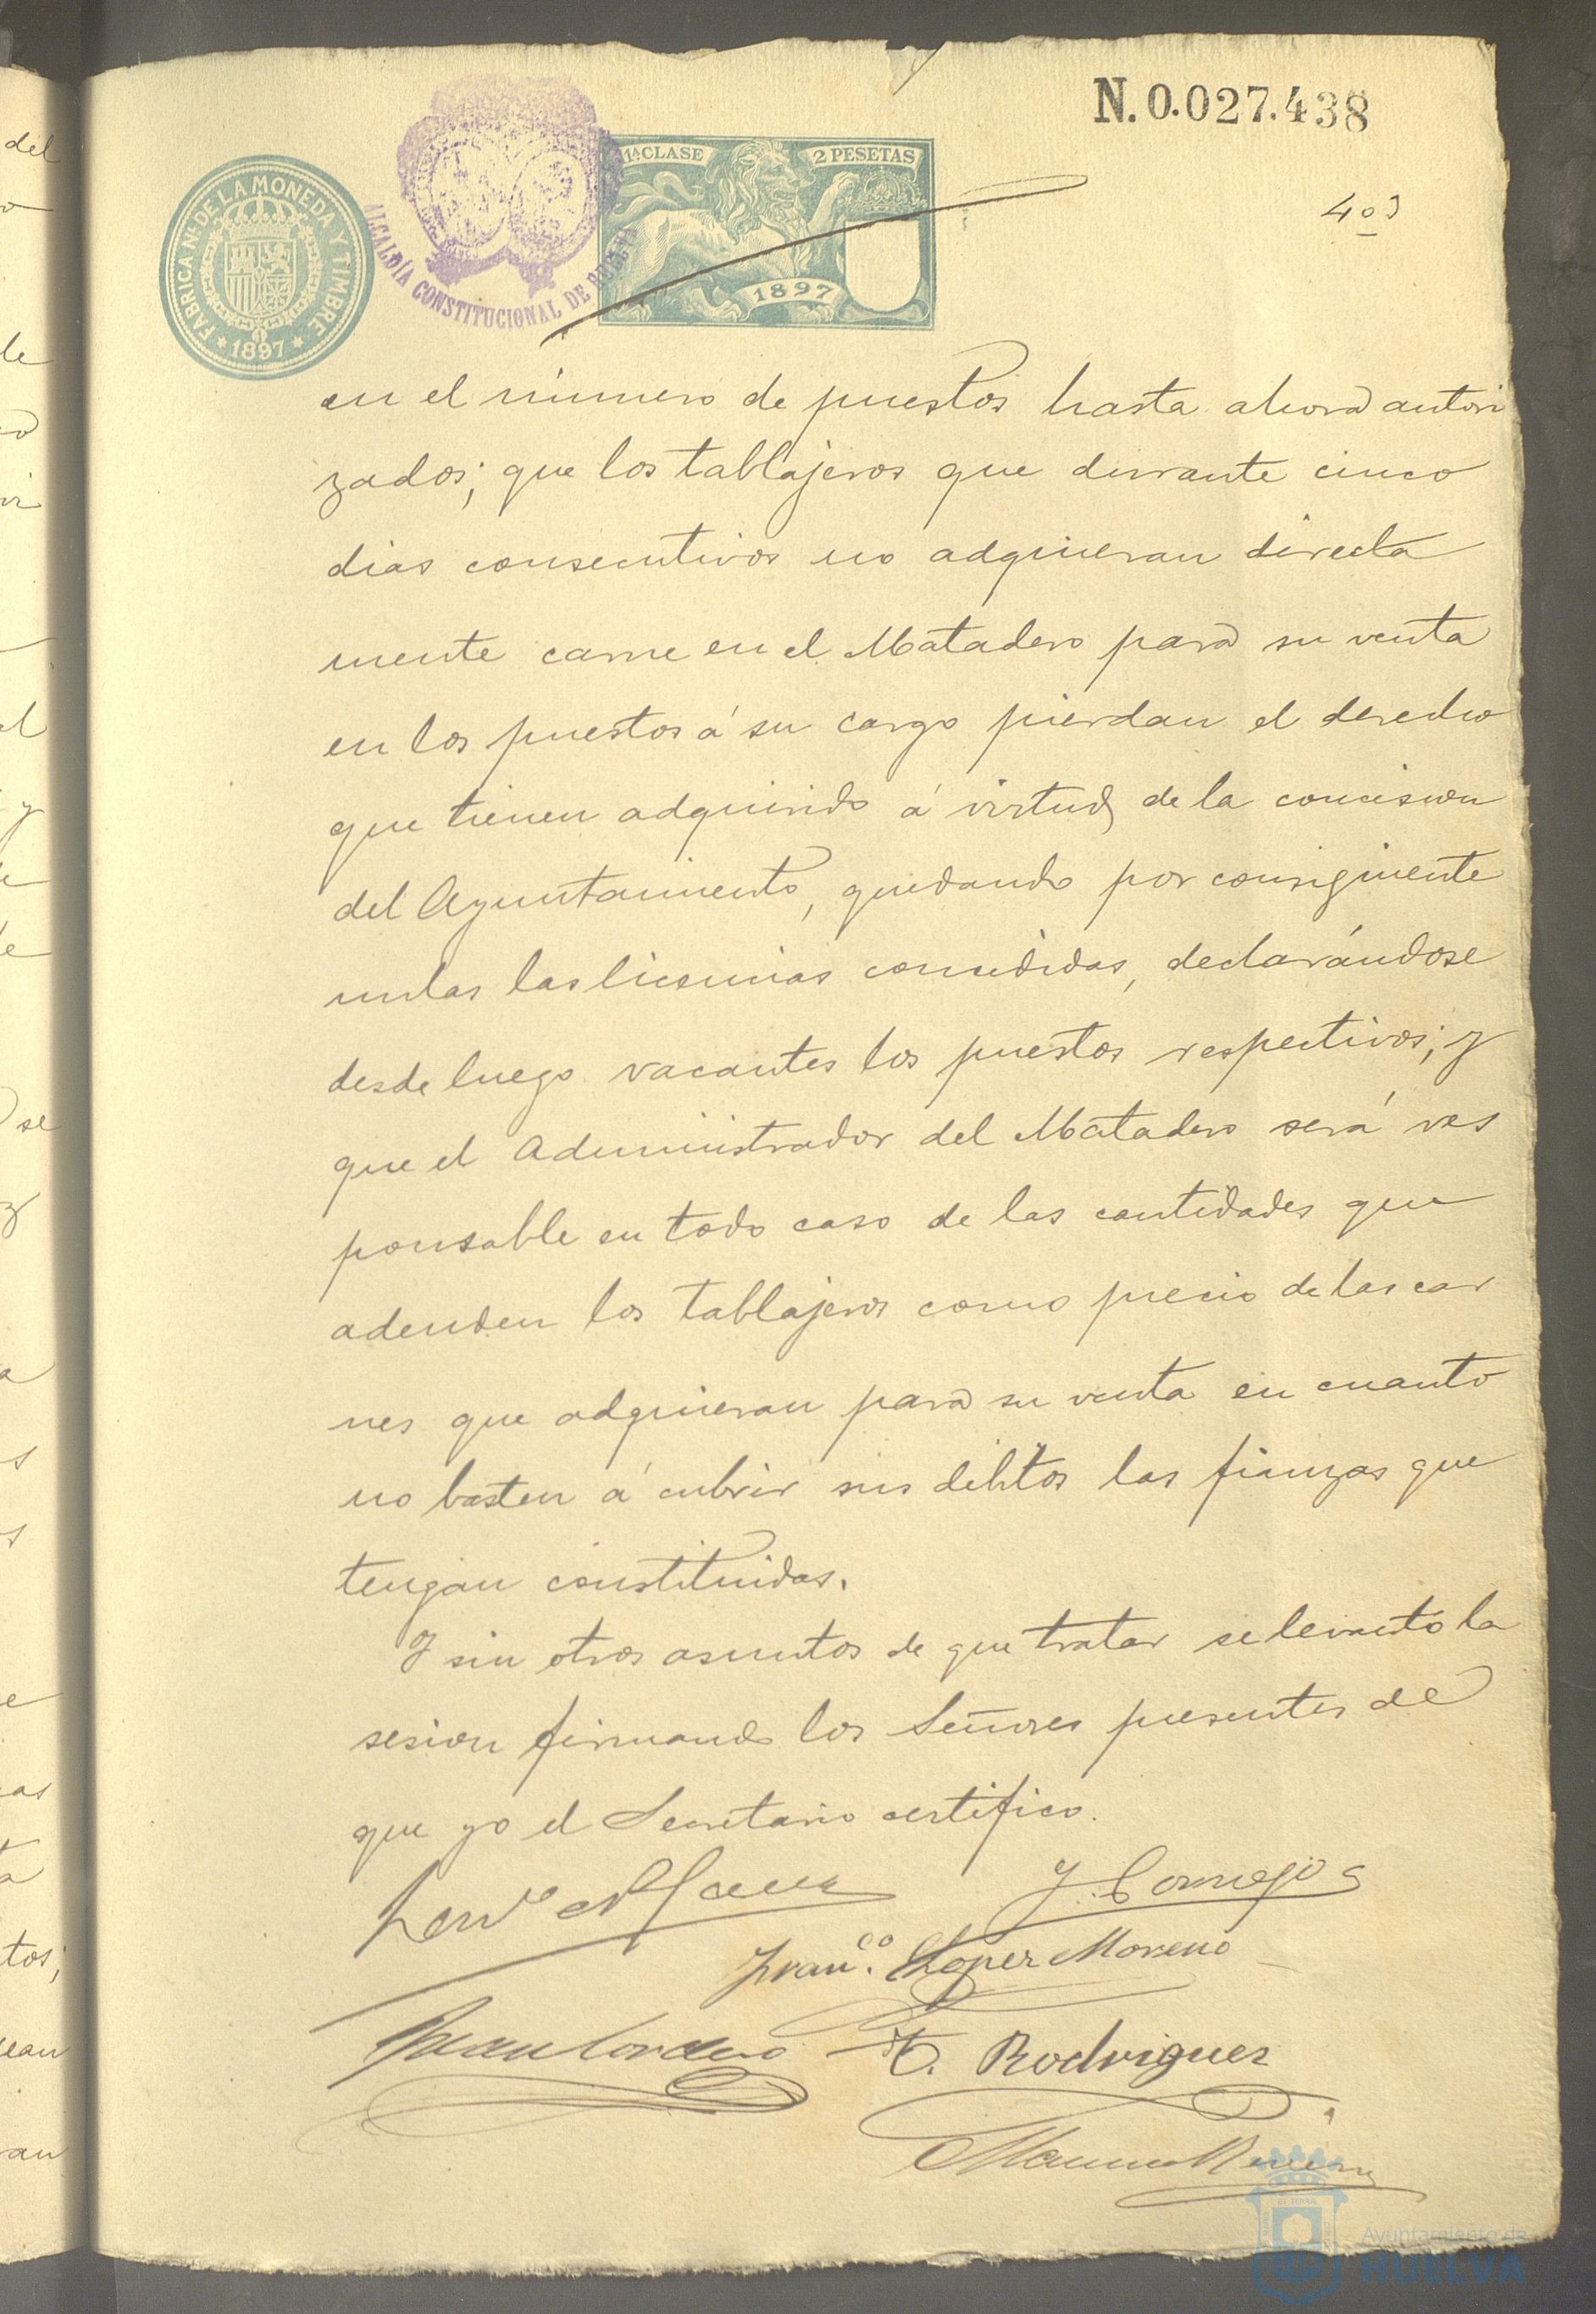 N. 0.027.438
FABRICA Nal. DE LA MONEDA Y TIMBRE
* 1897 *
ALCALDÍA CONSTITUCIONAL DE HUELVA
1ª CLASE
2 PESETAS
1897
en el número de puestos hasta ahora autori
zados; que los tablajeros que durrante cinco
dias consecutivos no adquieran directa
mente carne en el Matadero para su venta
en los puestos á su cargo pierdan el derecho
que tienen adquirido á virtud de la concision
del Ayuntamiento, quedando por consiguiente
nulas las licencias concedidas, declarándose
desde luego vacantes los puestos respectivos; y
que el Administrador del Matadero será res
ponsable en todo caso de las cantidades que
adeuden los tablajeros como precio de las car
nes que adquieran para su venta en cuanto
no basten á cubrir sus débitos las fianzas que
tengan constituidas.
Y sin otros asuntos de que tratar se levantó la
sesion firmando los Señores presentes de
que yo el Secretario certifico.
J. Cornejo
Franco. Lopez Moreno
Juan Cordero
T. Rodriguez
del
se
tos;
Ayuntamiento de
HUELVA